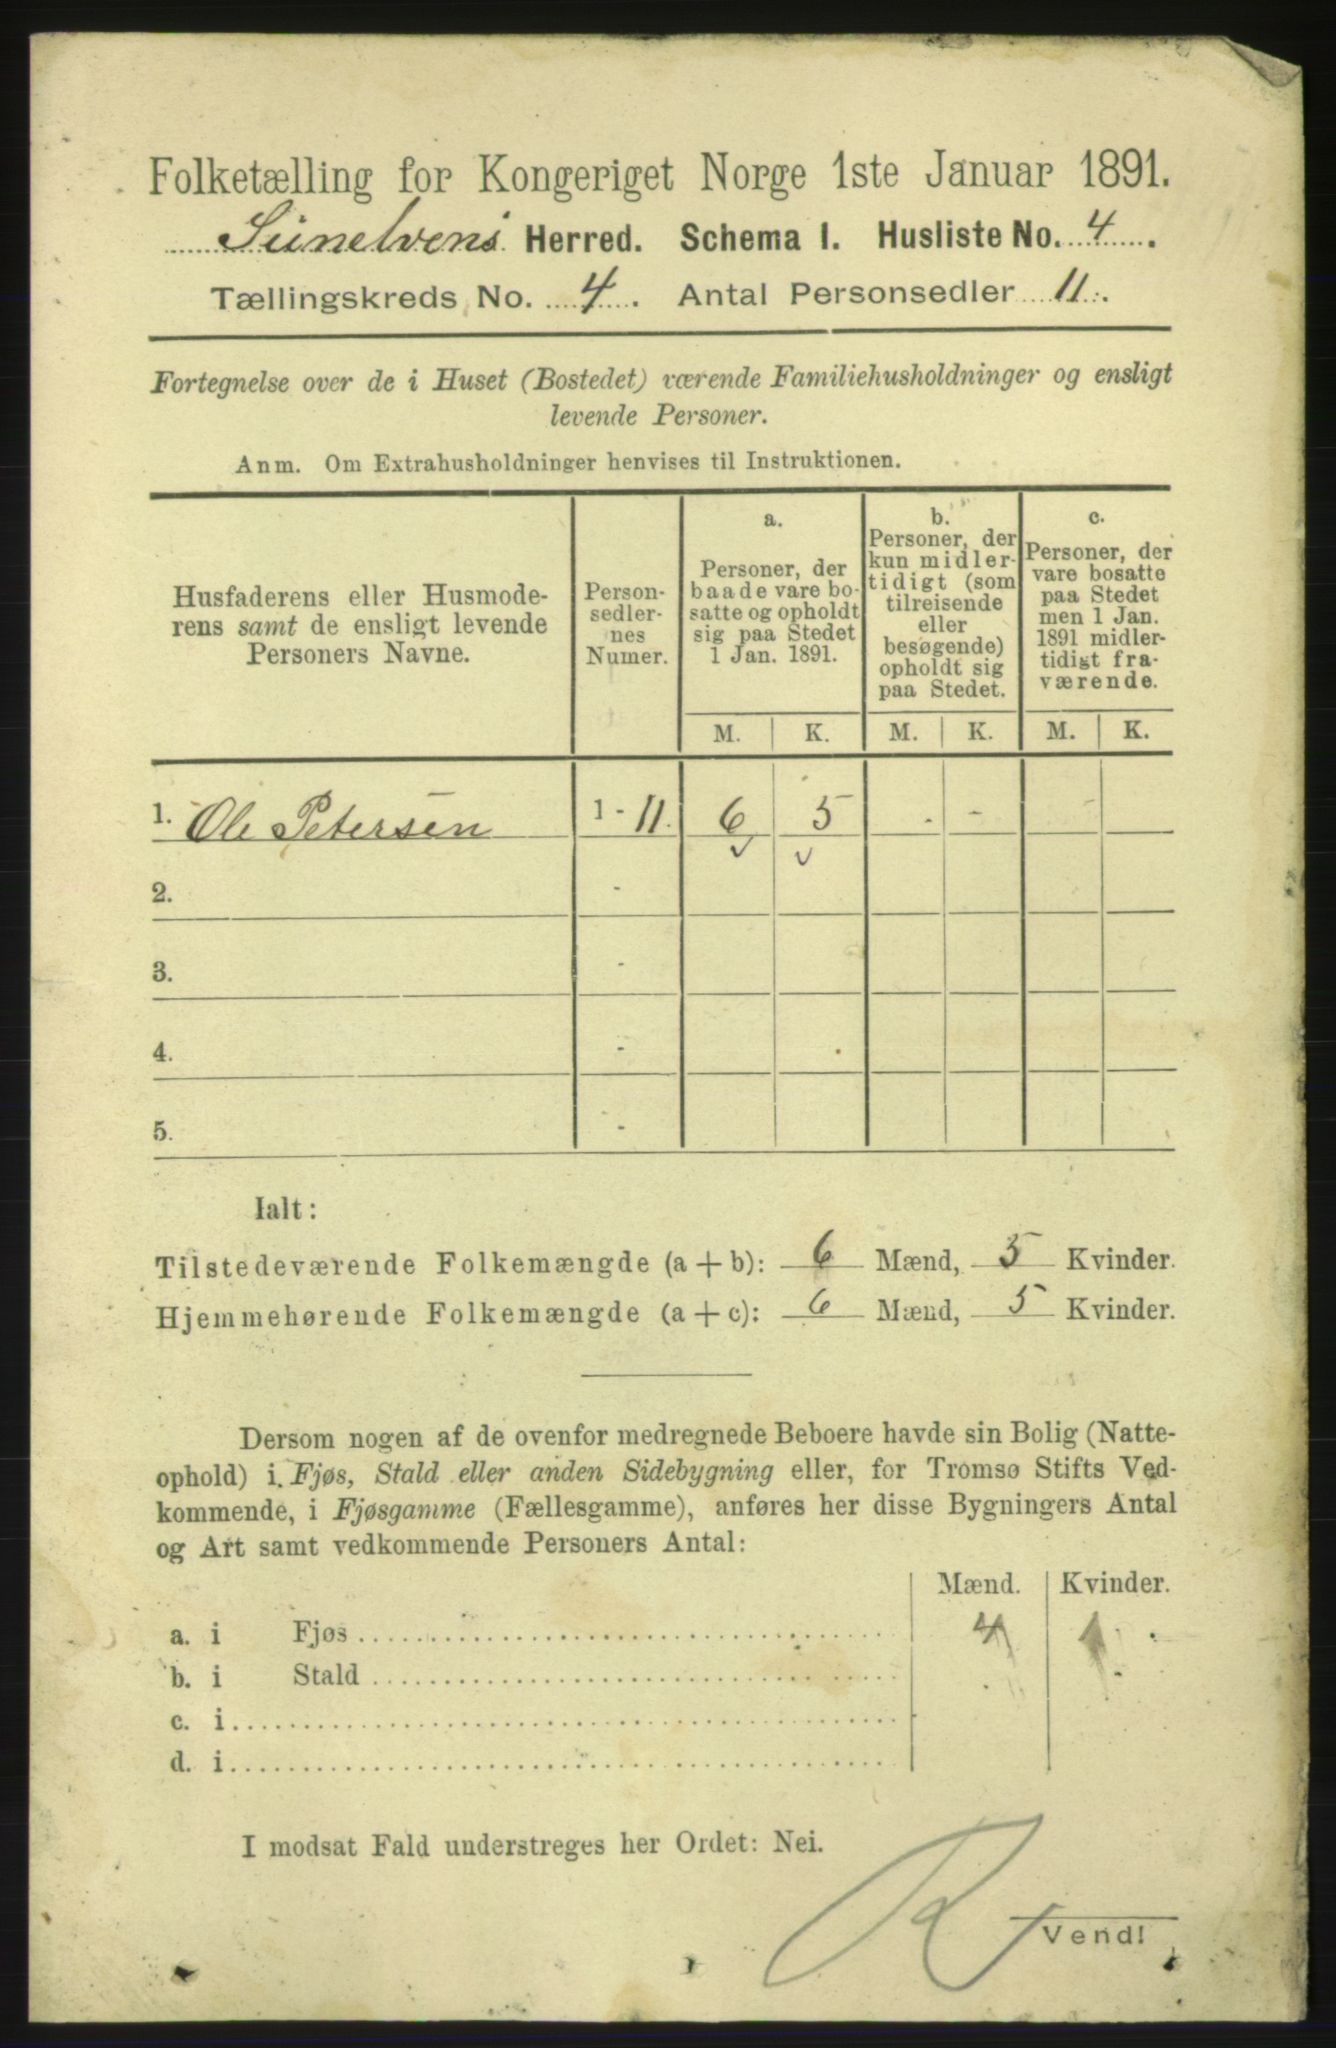 Folketælling for Kongeriget Norge 1ste Januar 1891.
Sunelvens Herred. Schema I. Husliste No. 4.
Tællingskreds No. 4. Antal Personsedler 11.
Fortegnelse over de i Huset (Bostedet) værende Familiehusholdninger og ensligt
levende Personer.
Anm. Om Extrahusholdninger henvises til Instruktionen.
Husfaderens eller Husmode-
rens samt de ensligt levende
Personers Navne.
Person-
sedler-
nes
Numer.
a.
Personer, der
baade vare bo-
satte og opholdt
sig paa Stedet
1 Jan. 1891.
b.
Personer, der
kun midler-
tidigt (som
tilreisende
eller
besøgende)
opholdt sig
paa Stedet.
c.
Personer, der
vare bosatte
paa Stedet
men 1 Jan.
1891 midler-
tidigt fra-
værende.
M. K. M. K. M. K.
1. Ole Petersen 1 - 11. 6 5 - - -
2. -
3. -
4. -
5. -
Ialt:
Tilstedeværende Folkemængde (a + b): 6 Mænd, 5 Kvinder.
Hjemmehørende Folkemængde (a + c): 6 Mænd, 5 Kvinder.
Dersom nogen af de ovenfor medregnede Beboere havde sin Bolig (Natte-
ophold) i Fjøs, Stald eller anden Sidebygning eller, for Tromsø Stifts Ved-
kommende, i Fjøsgamme (Fællesgamme), anføres her disse Bygningers Antal
og Art samt vedkommende Personers Antal:
Mænd. Kvinder.
a. i Fjøs 4 1
b. i Stald
c. i
d. i
I modsat Fald understreges her Ordet: Nei.
R
Vend!